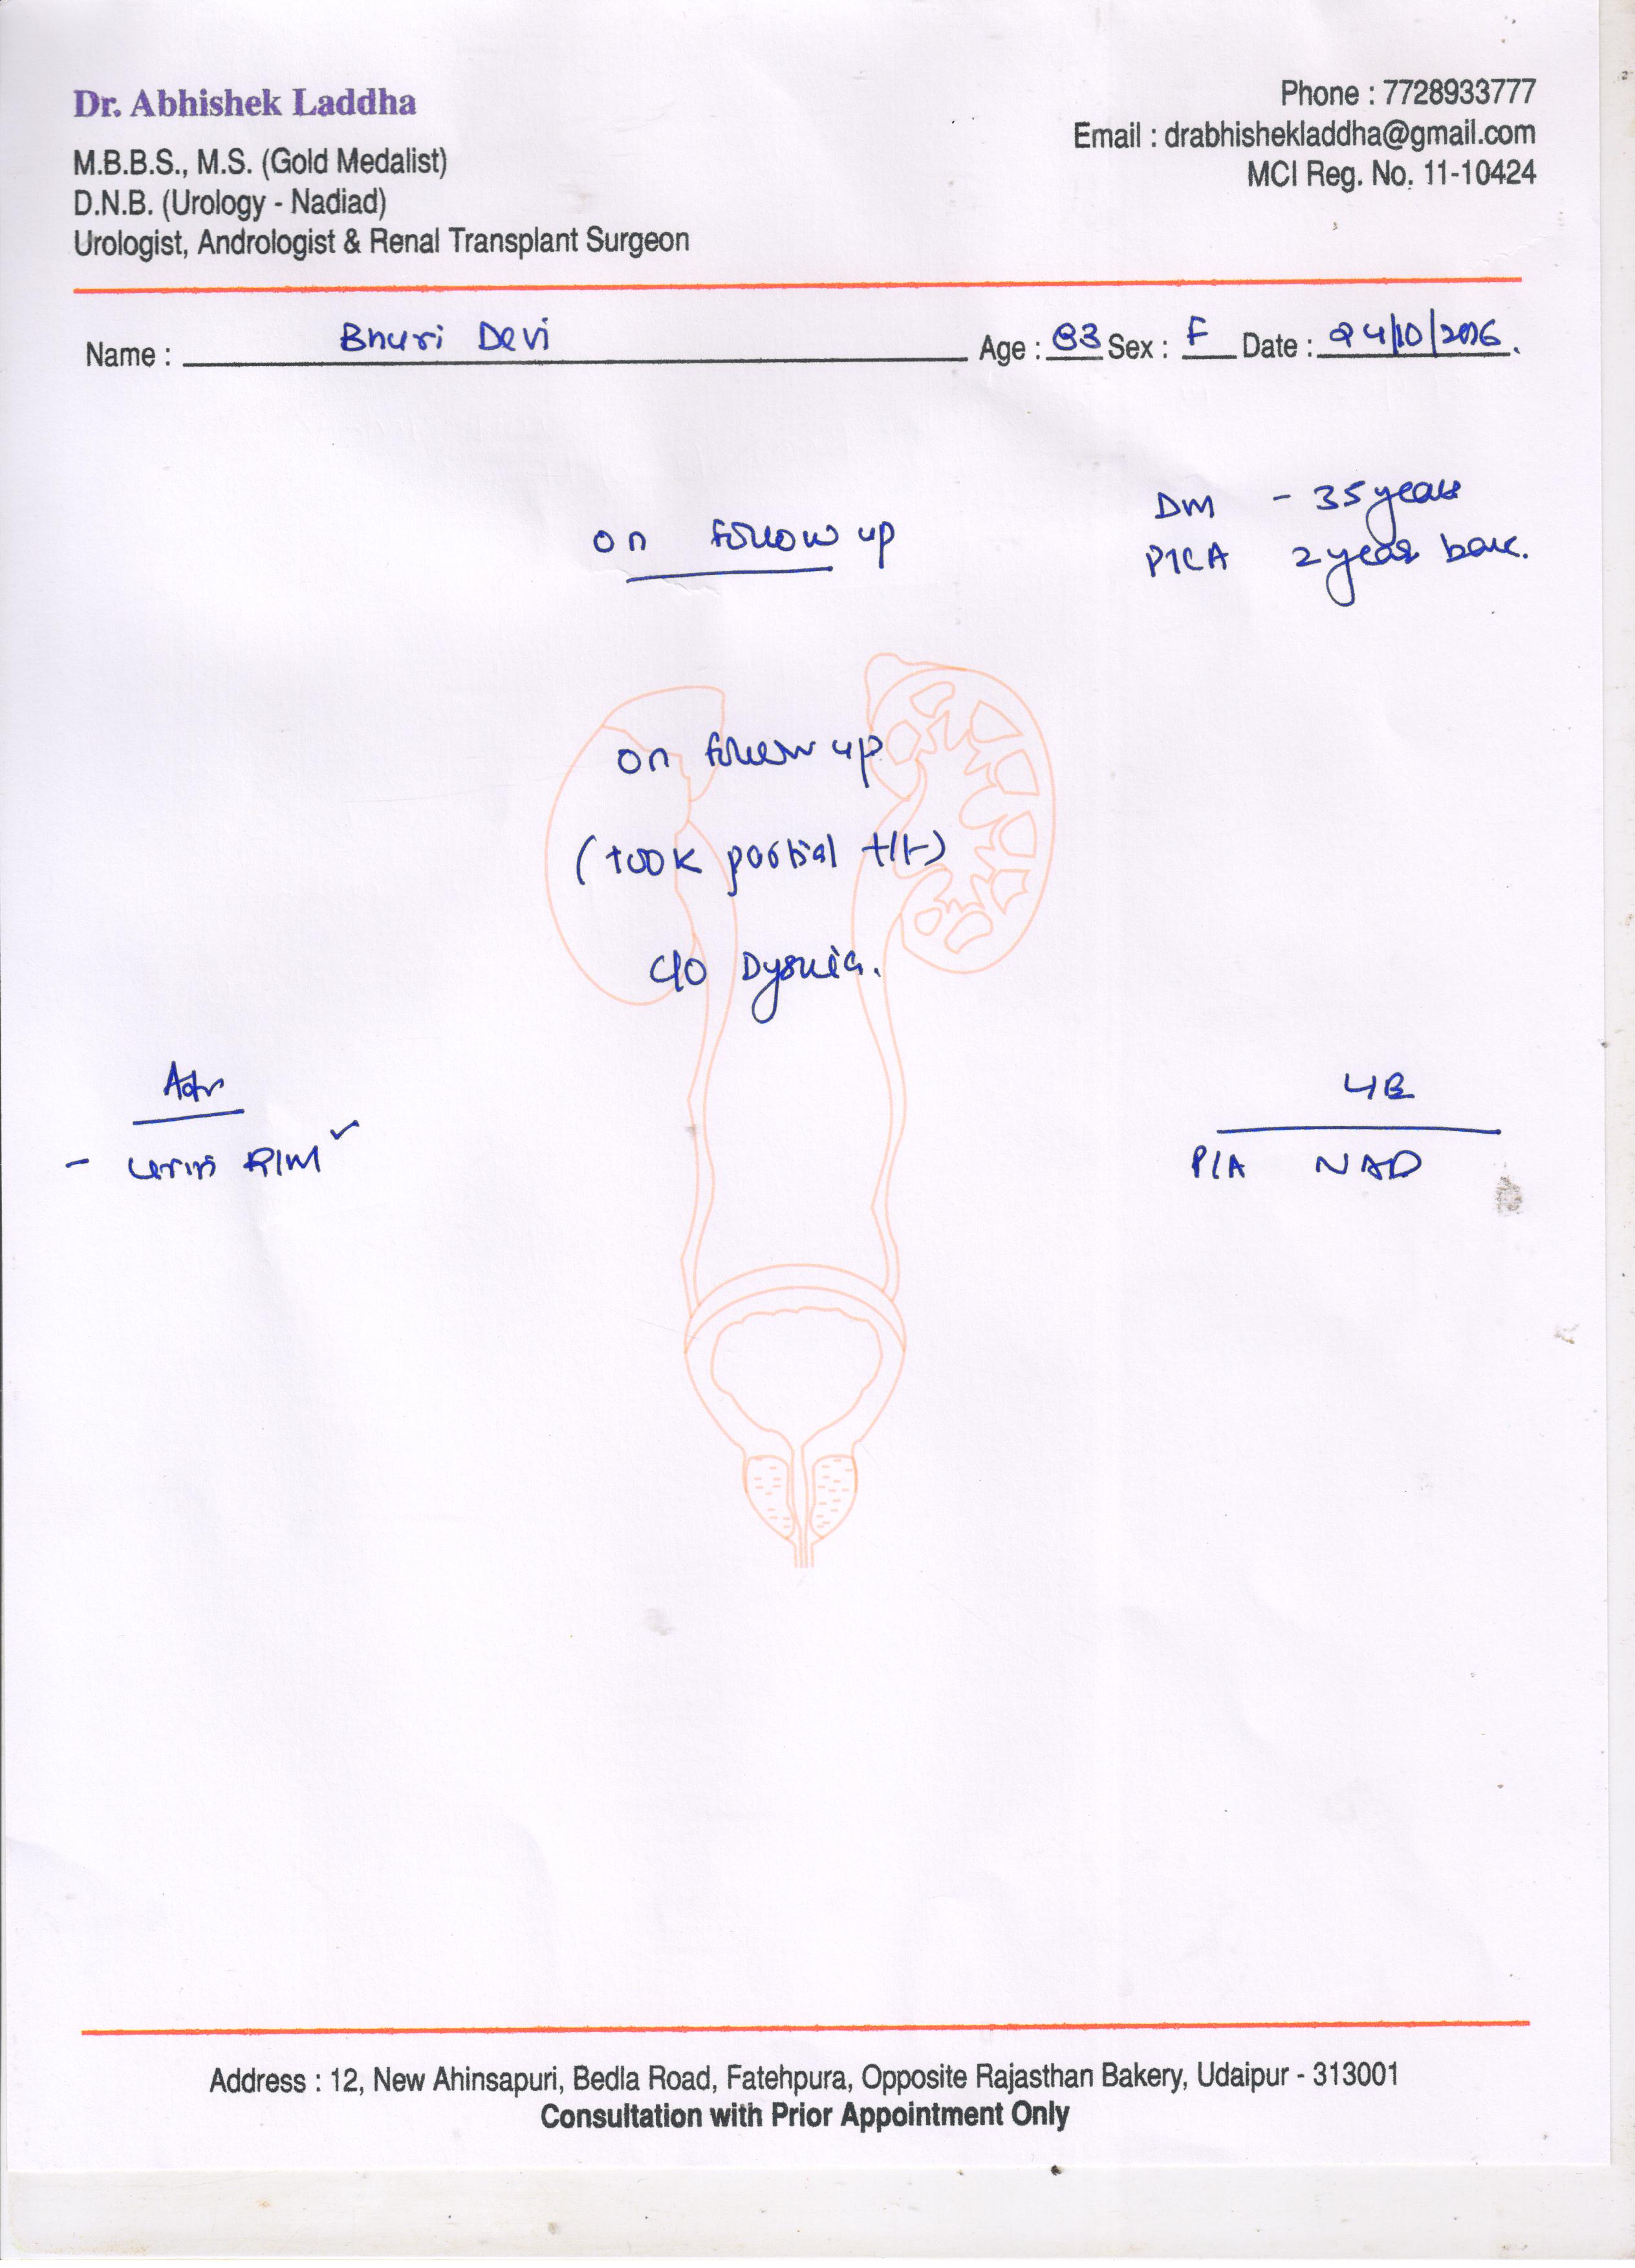 Dr. Abhishek Laddha
M.B.B.S., M.S. (Gold Medalist)
D.N.B. (Urology - Nadiad)
Urologist, Andrologist & Renal Transplant Surgeon
Phone : 7728933777
Email : drabhishekladdha@gmail.com
MCI Reg. No. 11-10424
Name : Bhuri Devi Age : 83 Sex : F Date : 24/10/2016.
DM - 35 years
PTCA 2 year back.
on follow up
on follow up
(took partial t/t)
c/o Dysuria.
Adv
- Urin R/M ✓
P/A NAD
Address : 12, New Ahinsapuri, Bedla Road, Fatehpura, Opposite Rajasthan Bakery, Udaipur - 313001
Consultation with Prior Appointment Only